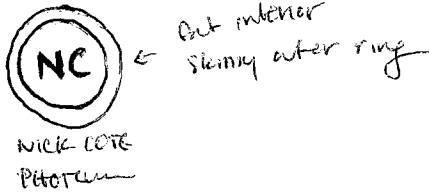 NC
fat interior
skinny outer ring
NICK COTE